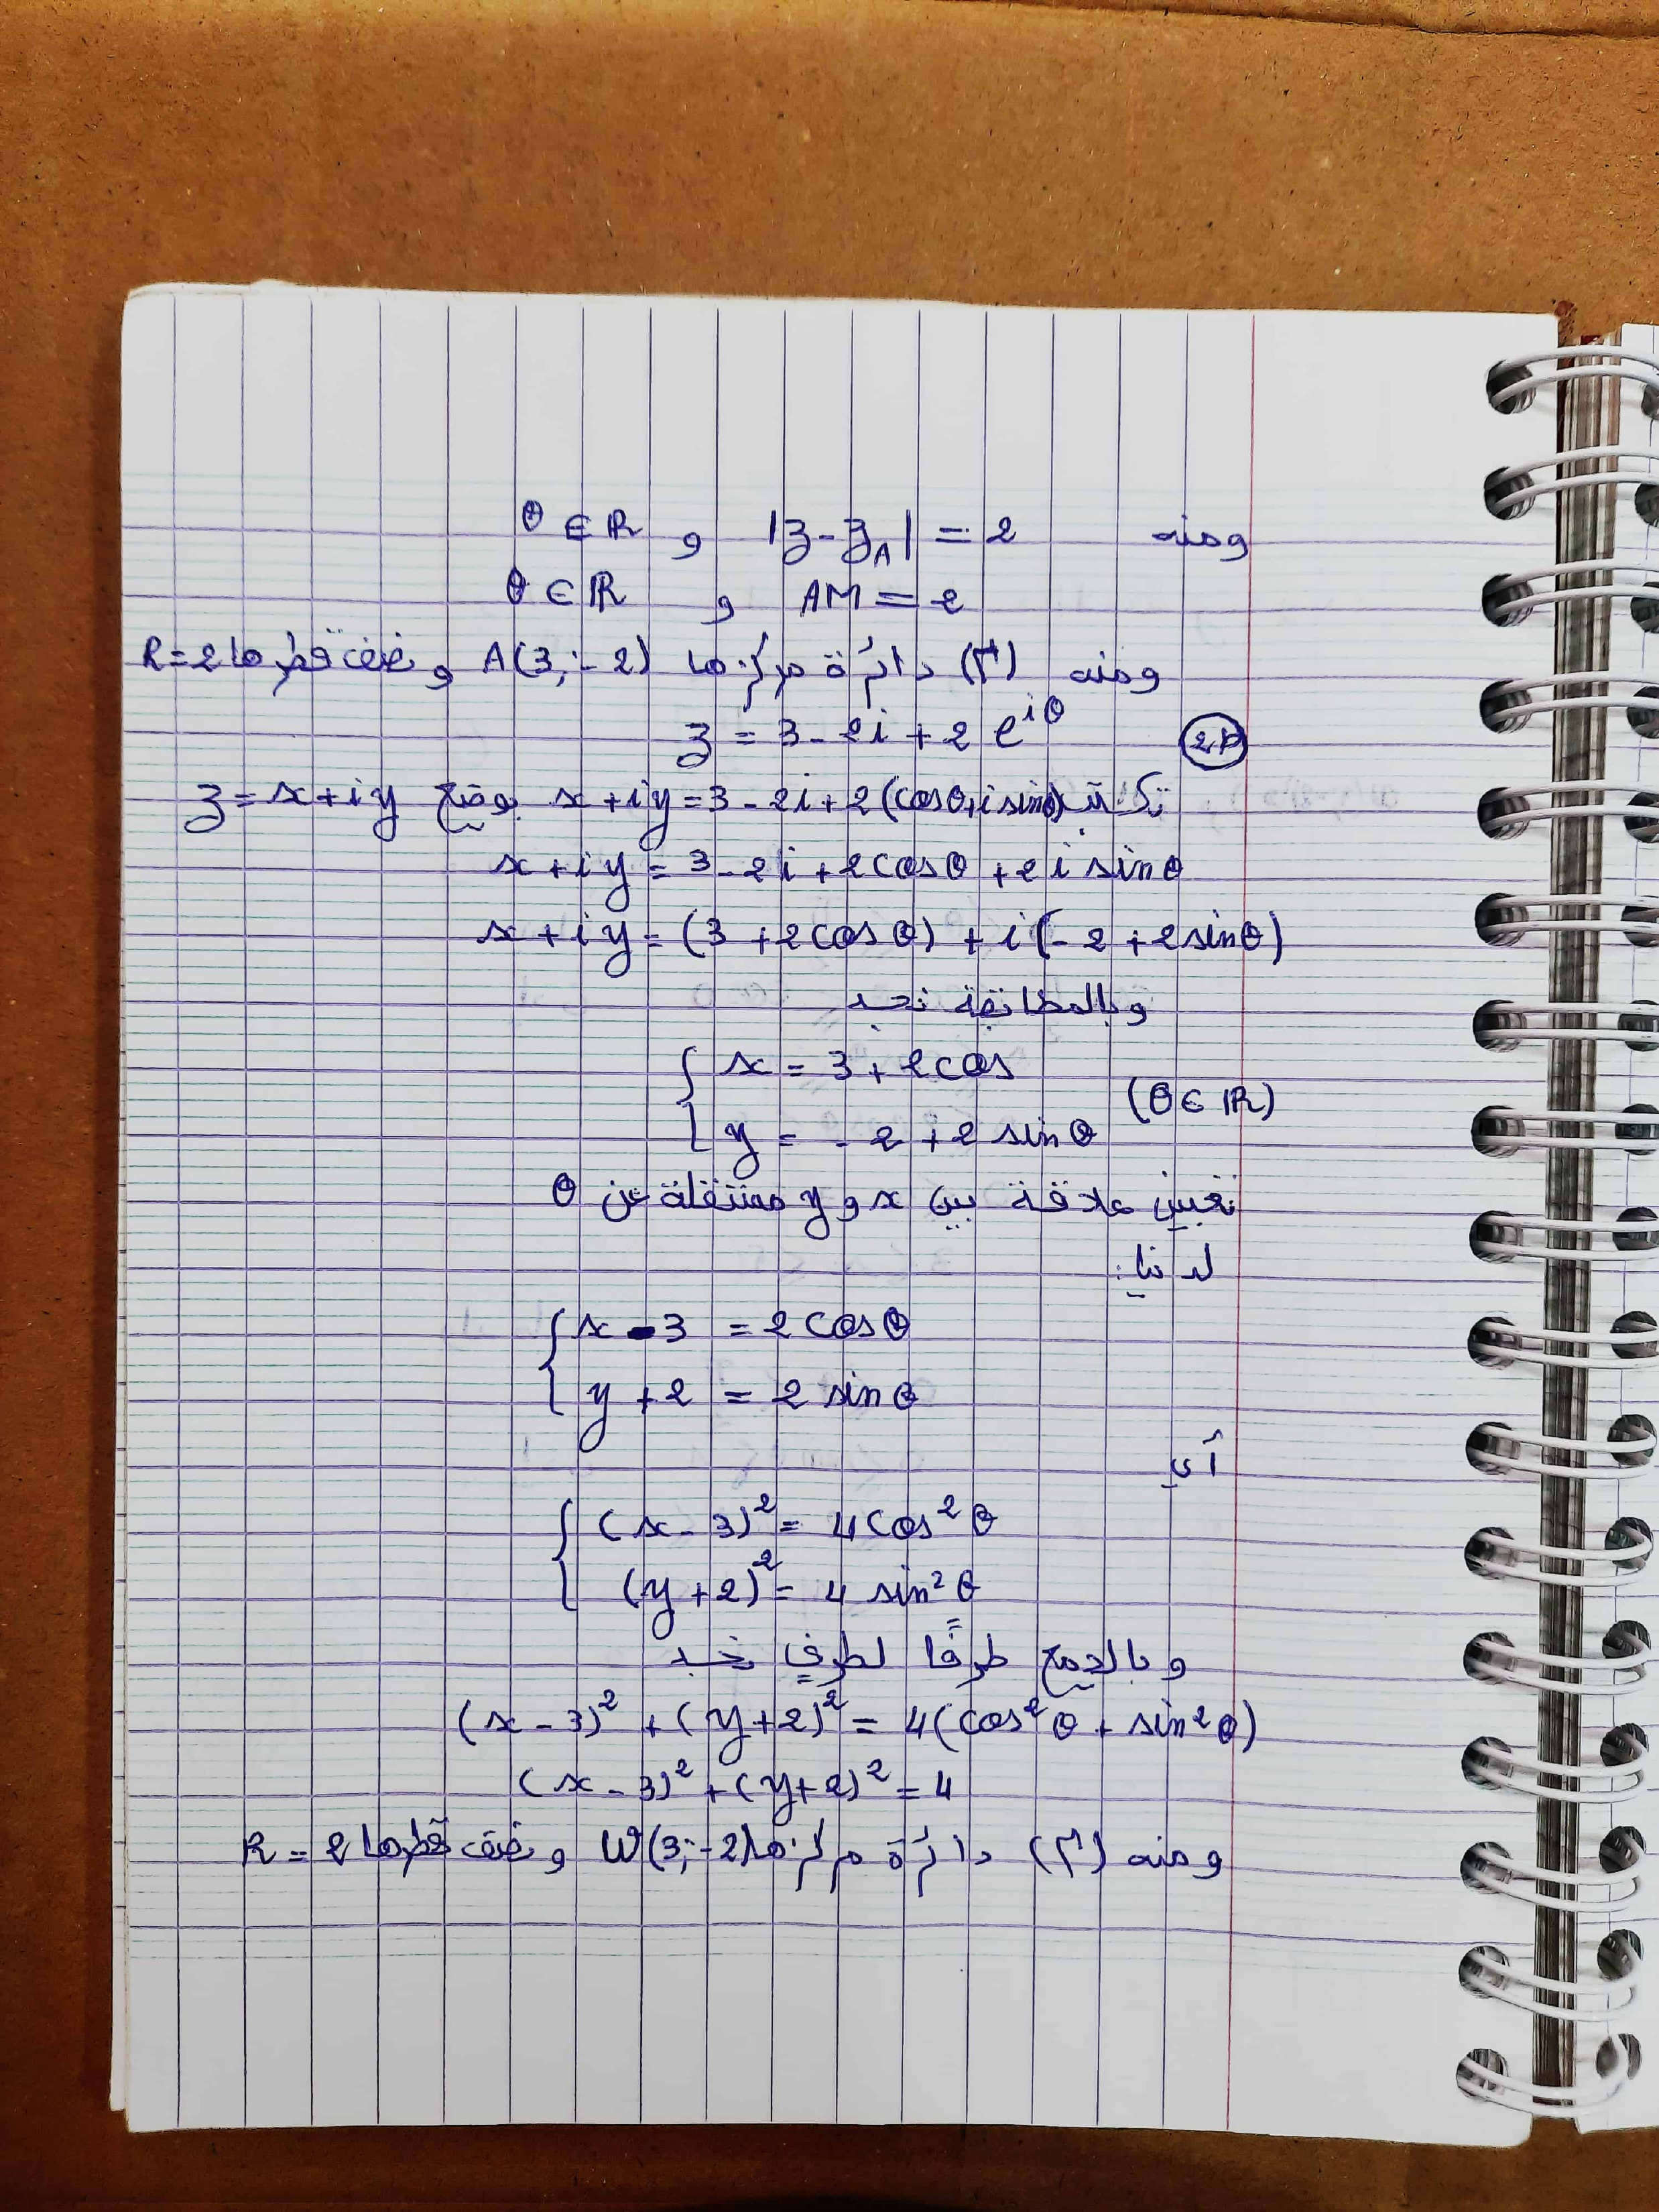 ومنه |z - z_A| = 2 و θ ∈ ℝ
AM = 2 و θ ∈ ℝ
ومنه (Γ) دائرة مركزها A(3; -2) و نصف قطرها R = 2
2.ب z = 3 - 2i + 2e^{iθ}
تكافئ x + iy = 3 - 2i + 2(cosθ + i sinθ) بوضع z = x + iy
x + iy = 3 - 2i + 2cosθ + 2i sinθ
x + iy = (3 + 2cosθ) + i(-2 + 2sinθ)
وبالمطابقة نجد
{ x = 3 + 2cos
(θ ∈ ℝ)
y = -2 + 2 sinθ
تعيين علاقة بين x و y مستقلة عن θ
لدينا:
{ x - 3 = 2cosθ
y + 2 = 2 sinθ
أي
{ (x - 3)² = 4cos²θ
(y + 2)² = 4 sin²θ
وبالجمع طرفًا لطرفٍ نجد
(x - 3)² + (y + 2)² = 4(cos²θ + sin²θ)
(x - 3)² + (y + 2)² = 4
ومنه (Γ) دائرة مركزها W(3; -2) و نصف قطرها R = 2